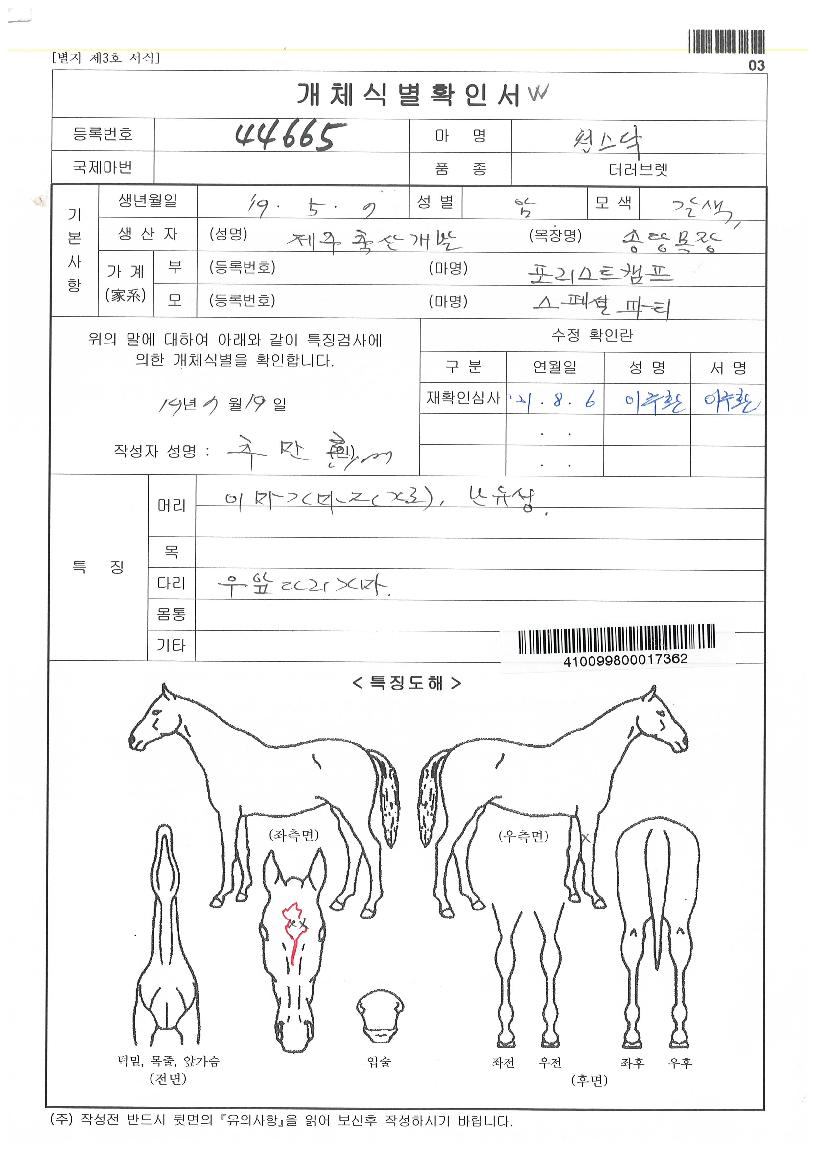 [별지 제3호 서식]
03
개체식별확인서 W
등록번호 44665 마 명 천스닥
국제마번 품 종 더러브렛
기본사항
생년월일 '19. 5. 7 성별 암 모색 갈색
생산자 (성명) 제주축산개발 (목장명) 송당목장
가계(家系) 부 (등록번호) (마명) 포리스트캠프
모 (등록번호) (마명) 스페셜파티
위의 말에 대하여 아래와 같이 특징검사에
의한 개체식별을 확인합니다.
19년 7월 19일
작성자 성명 : 추만 (인)
수정 확인란
구 분 연월일 성 명 서 명
재확인심사 '21. 8. 6 이주환 이주환
. .
. .
특 징
머리
목
다리 우앞다리
몸통
기타
410099800017362
< 특징도해 >
(좌측면) (우측면) X
턱밑, 목줄, 앞가슴
(전면)
입술
좌전 우전 좌후 우후
(후면)
(주) 작성전 반드시 뒷면의 『유의사항』을 읽어 보신후 작성하시기 바랍니다.